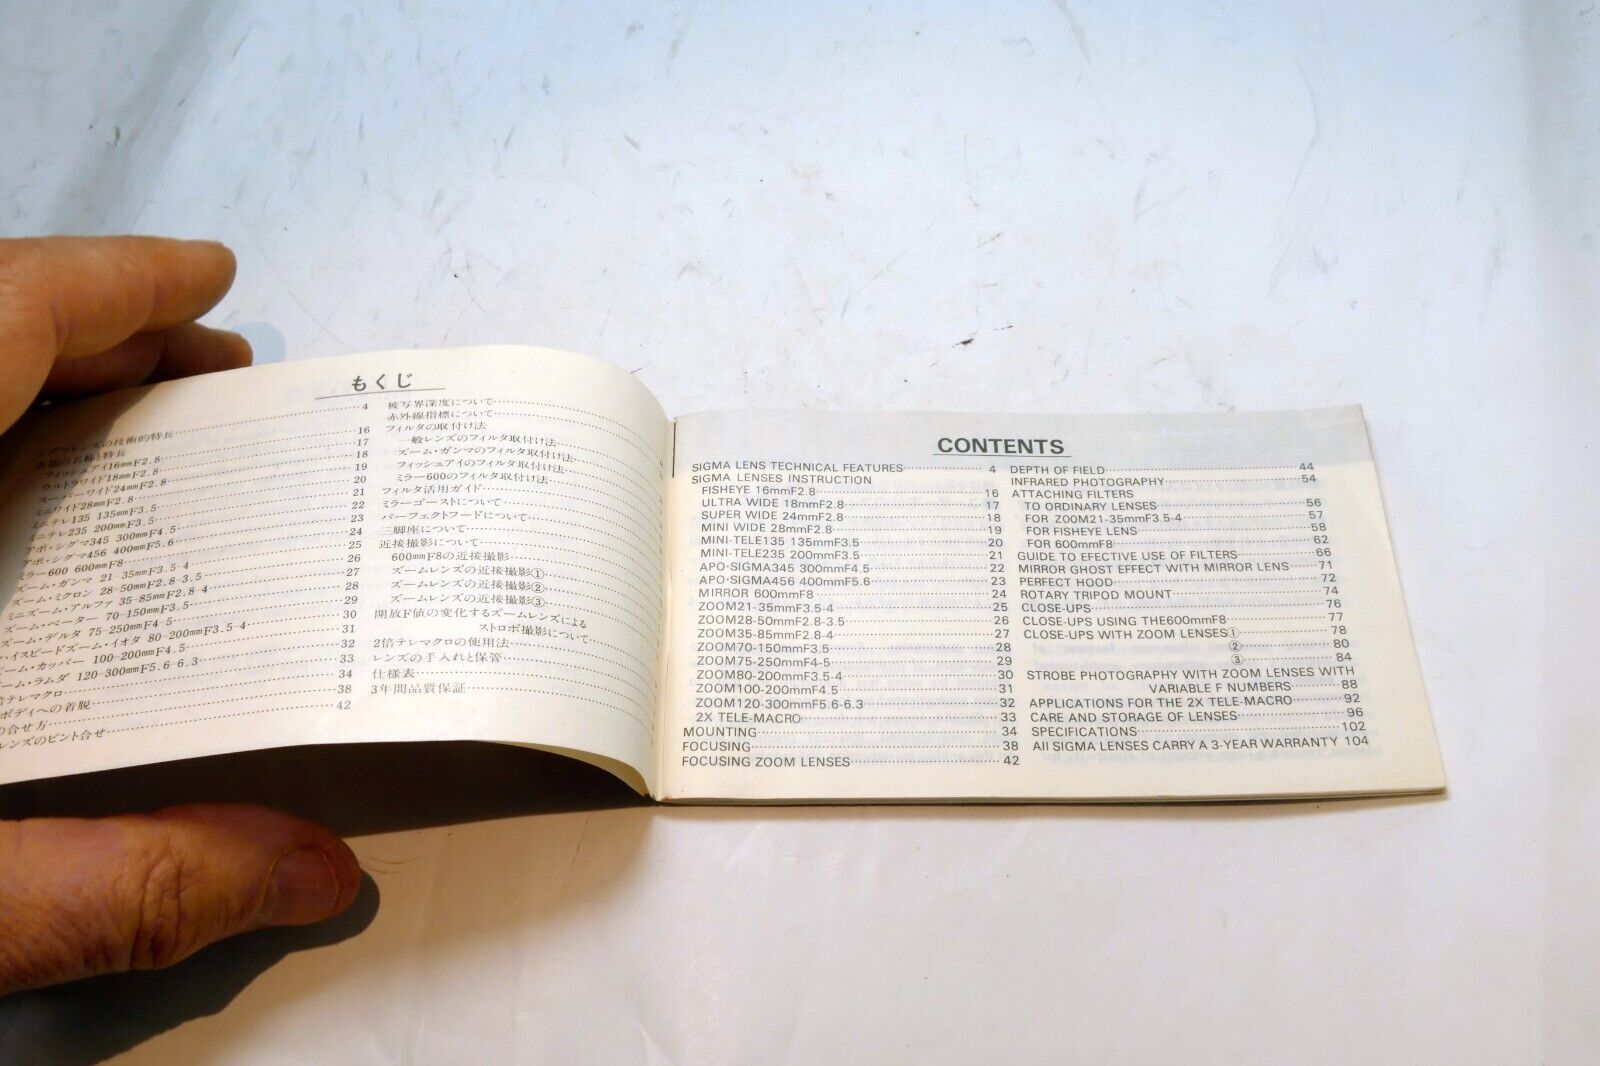 もくじ
の技術的特長 4
各部の名称と特長
フィッシュアイ16mmF2.8 16
ウルトラワイド18mmF2.8 17
スーパーワイド24mmF2.8 18
ミニワイド28mmF2.8 19
ミニテレ135 135mmF3.5 20
ミニテレ235 200mmF3.5 21
アポ・シグマ345 300mmF4.5 22
アポ・シグマ456 400mmF5.6 23
ミラー600 600mmF8 24
ズーム・ガンマ 21-35mmF3.5-4 25
ズーム・ミクロン 28-50mmF2.8-3.5 26
ミニズーム・アルファ 35-85mmF2.8-4 27
ズーム・ベーター 70-150mmF3.5 28
ズーム・デルタ 75-250mmF4-5 29
ハイスピードズーム・イオタ 80-200mmF3.5-4 30
ズーム・カッパー 100-200mmF4.5 31
ズーム・ラムダ 120-300mmF5.6-6.3 32
テレマクロ 33
ボディへの着脱 34
の合せ方 38
レンズのピント合せ 42
被写界深度について
赤外線指標について
フィルタの取付け法
一般レンズのフィルタ取付け法
ズーム・ガンマのフィルタ取付け法
フィッシュアイのフィルタ取付け法
ミラー600のフィルタ取付け法
フィルタ活用ガイド
ミラーゴーストについて
パーフェクトフードについて
三脚座について
近接撮影について
600mmF8の近接撮影
ズームレンズの近接撮影①
ズームレンズの近接撮影②
ズームレンズの近接撮影③
開放F値の変化するズームレンズによる
ストロボ撮影について
2倍テレマクロの使用法
レンズの手入れと保管
仕様表
3年間品質保証
CONTENTS
SIGMA LENS TECHNICAL FEATURES 4
SIGMA LENSES INSTRUCTION
FISHEYE 16mmF2.8 16
ULTRA WIDE 18mmF2.8 17
SUPER WIDE 24mmF2.8 18
MINI WIDE 28mmF2.8 19
MINI-TELE135 135mmF3.5 20
MINI-TELE235 200mmF3.5 21
APO-SIGMA345 300mmF4.5 22
APO-SIGMA456 400mmF5.6 23
MIRROR 600mmF8 24
ZOOM21-35mmF3.5-4 25
ZOOM28-50mmF2.8-3.5 26
ZOOM35-85mmF2.8-4 27
ZOOM70-150mmF3.5 28
ZOOM75-250mmF4-5 29
ZOOM80-200mmF3.5-4 30
ZOOM100-200mmF4.5 31
ZOOM120-300mmF5.6-6.3 32
2X TELE-MACRO 33
MOUNTING 34
FOCUSING 38
FOCUSING ZOOM LENSES 42
DEPTH OF FIELD 44
INFRARED PHOTOGRAPHY 54
ATTACHING FILTERS
TO ORDINARY LENSES 56
FOR ZOOM21-35mmF3.5-4 57
FOR FISHEYE LENS 58
FOR 600mmF8 62
GUIDE TO EFECTIVE USE OF FILTERS 66
MIRROR GHOST EFFECT WITH MIRROR LENS 71
PERFECT HOOD 72
ROTARY TRIPOD MOUNT 74
CLOSE-UPS 76
CLOSE-UPS USING THE600mmF8 77
CLOSE-UPS WITH ZOOM LENSES① 78
② 80
③ 84
STROBE PHOTOGRAPHY WITH ZOOM LENSES WITH
VARIABLE F NUMBERS 88
APPLICATIONS FOR THE 2X TELE-MACRO 92
CARE AND STORAGE OF LENSES 96
SPECIFICATIONS 102
All SIGMA LENSES CARRY A 3-YEAR WARRANTY 104